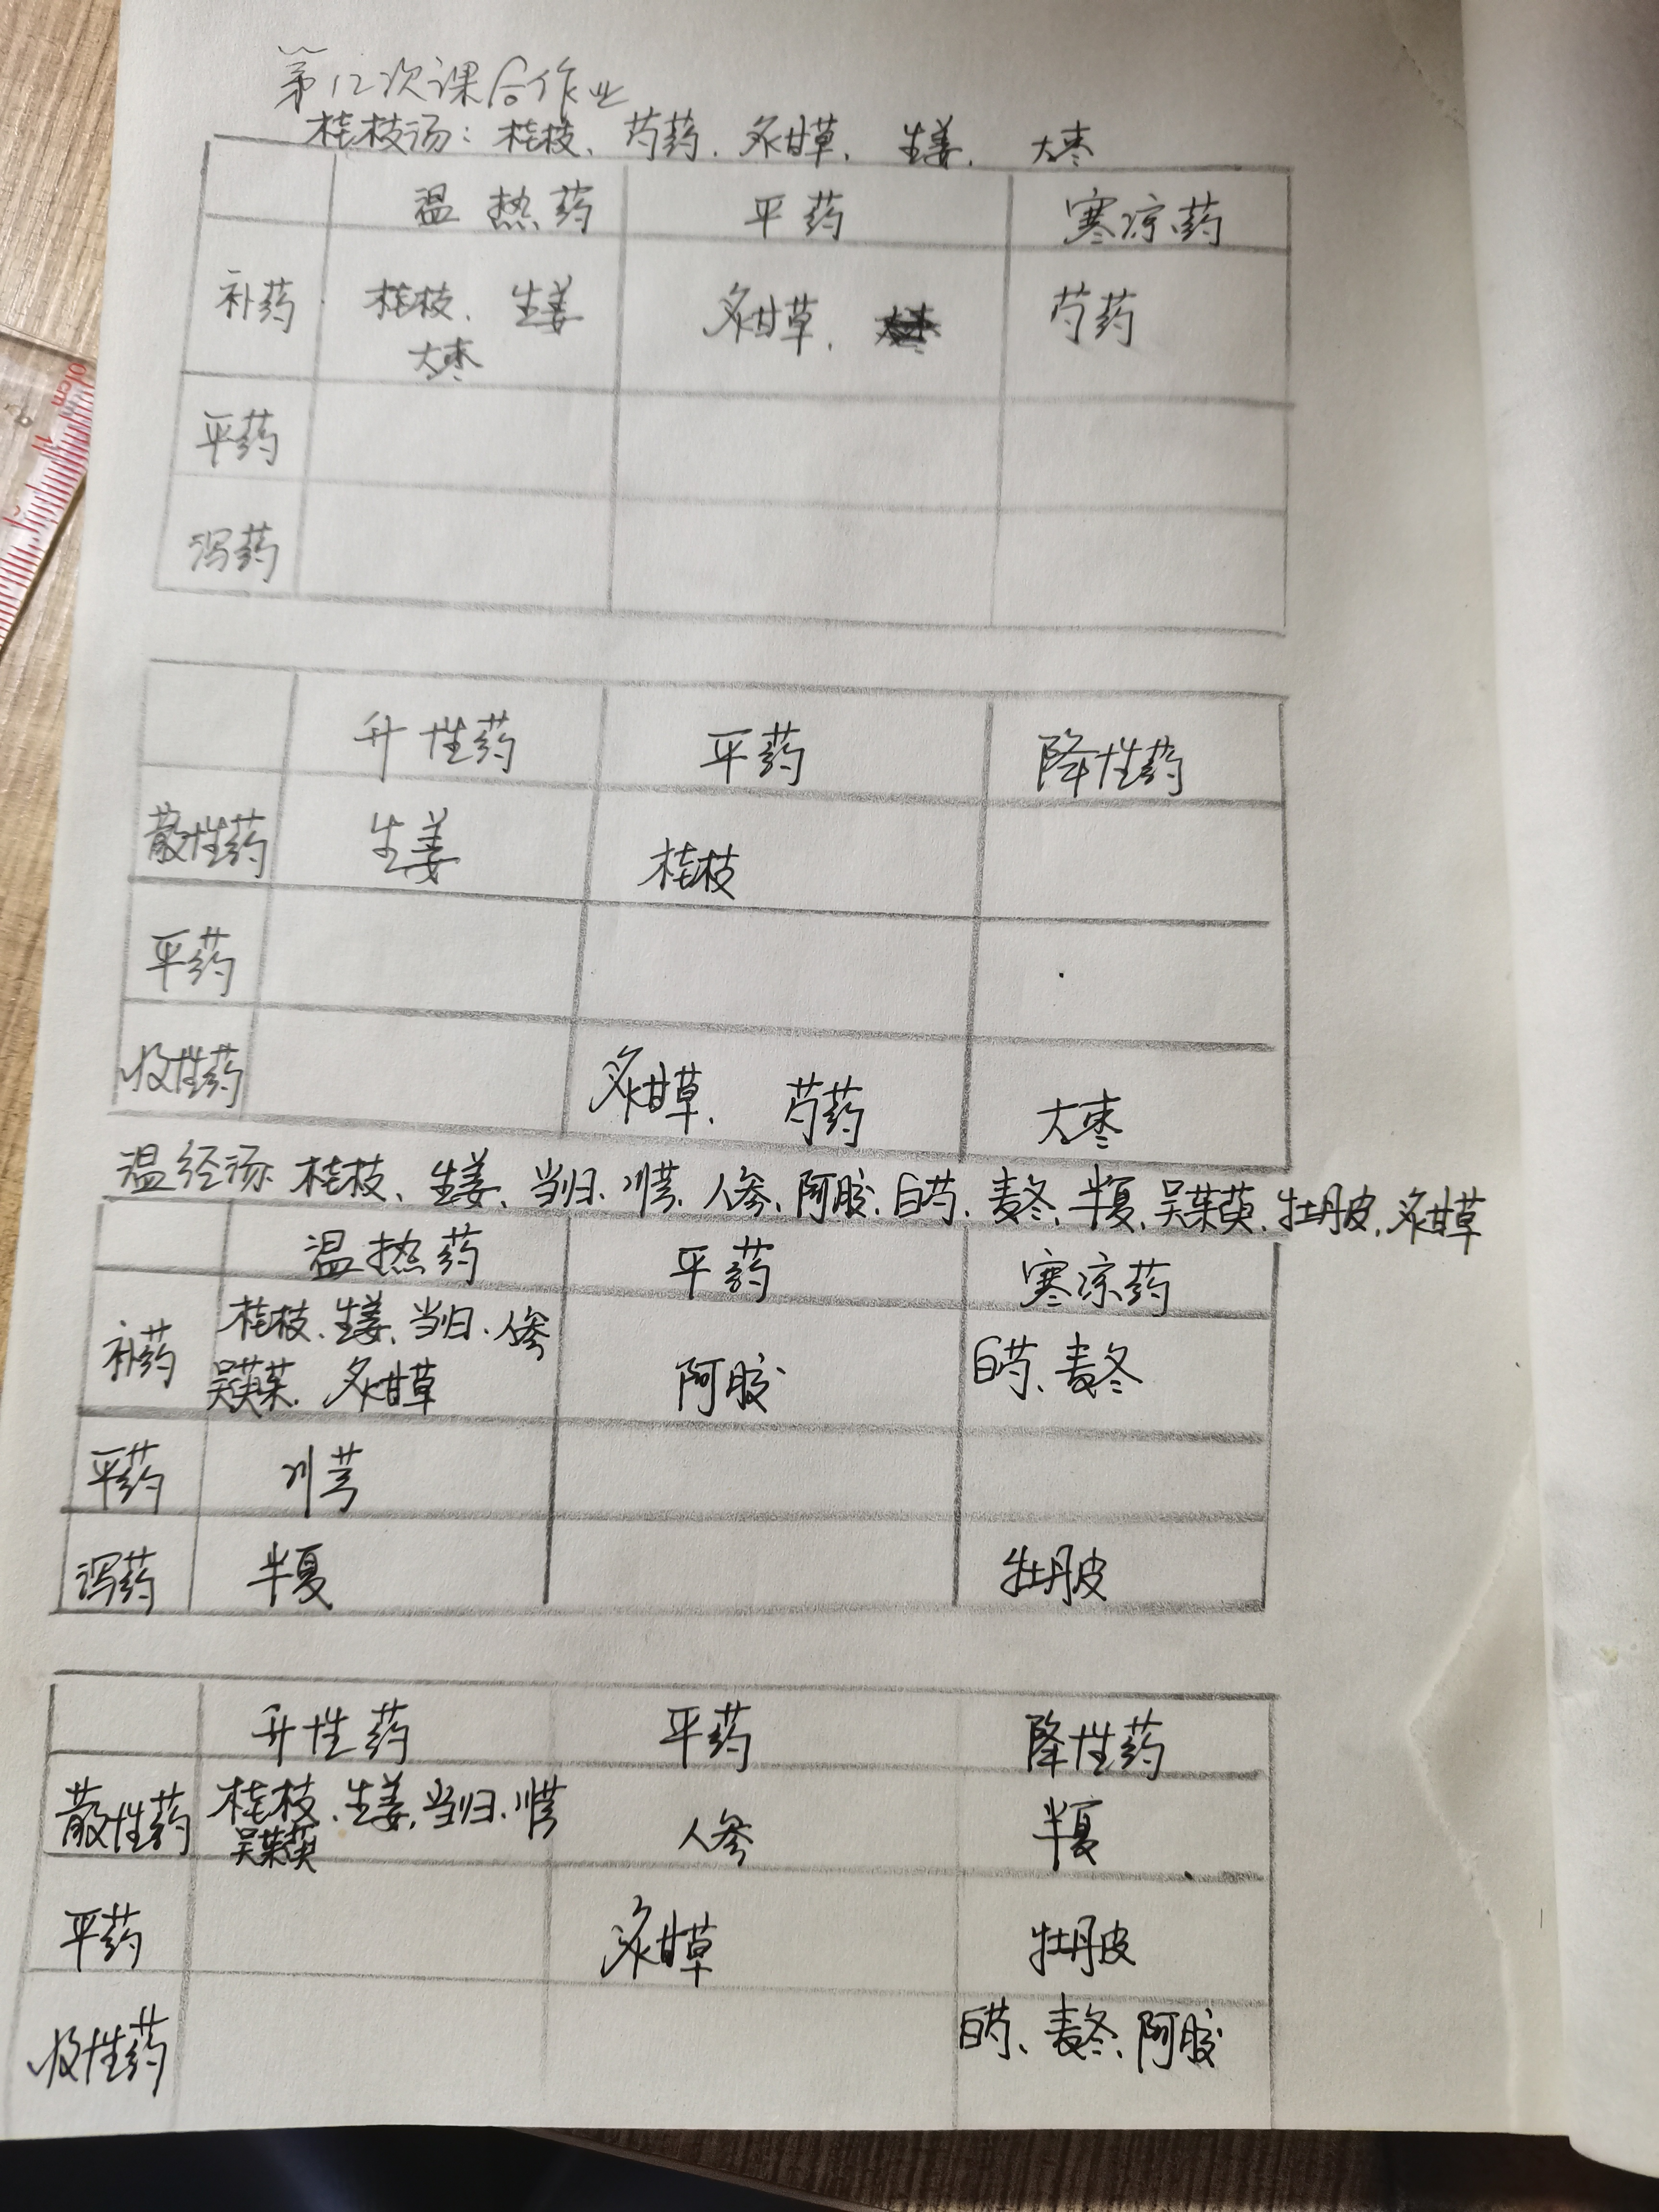 第12次课合作业
桂枝汤：桂枝、芍药、炙甘草、生姜、大枣
温热药 平药 寒凉药
补药 桂枝、生姜 炙甘草、 芍药
大枣
平药
泻药
升性药 平药 降性药
散性药 生姜 桂枝
平药
收性药 炙甘草、芍药 大枣
温经汤 桂枝、生姜、当归、川芎、人参、阿胶、白芍、麦冬、半夏、吴茱萸、牡丹皮、炙甘草
温热药 平药 寒凉药
补药 桂枝、生姜、当归、人参 阿胶 白芍、麦冬
吴萸茱、炙甘草
平药 川芎
泻药 半夏 牡丹皮
升性药 平药 降性药
散性药 桂枝、生姜、当归、川芎 人参 半夏
吴茱萸
平药 炙甘草 牡丹皮
收性药 白芍、麦冬、阿胶